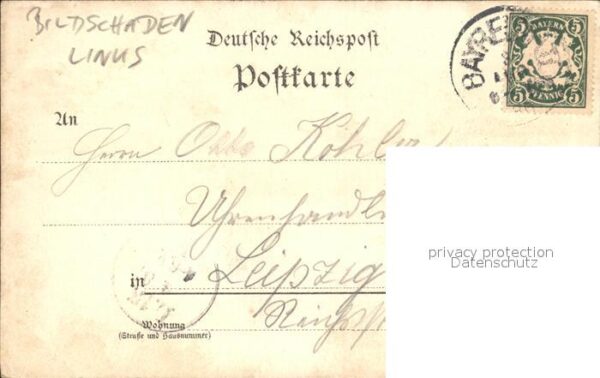 BILDSCHADEN
LINKS
Deutsche Reichspost
Postkarte
BAYRE
5 BAYERN 5
5 PFENNIG 5
An
Herrn Otto Köhler
Uhrenhandl
in Leipzig
Wohnung
(Straße und Hausnummer)
privacy protection
Datenschutz